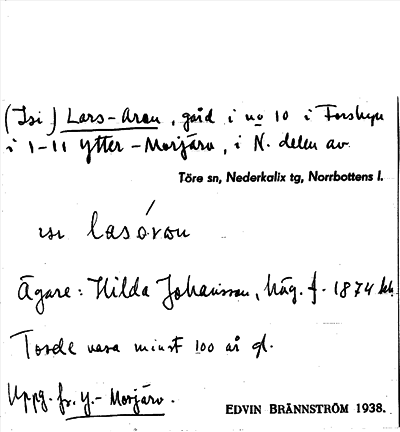 (Isi) Lars-Aran, gård i no 10 i Forsbyn
i 1-11 Ytter-Morjärv, i N. delen av
Töre sn, Nederkalix tg, Norrbottens l.
lasóran
Ägare: Hilda Johansson, häg. f. 1874
Torde vara minst 100 år gl.
Uppg. fr. Y.-Morjärv.
EDVIN BRÄNNSTRÖM 1938.